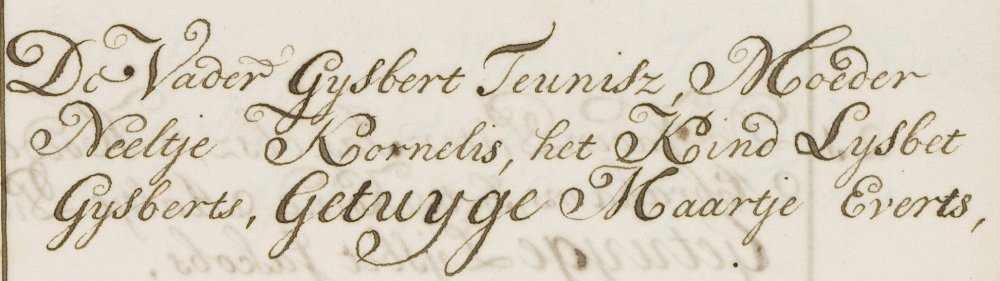 De Vader Gysbert Teunisz, Moeder
Neeltje Koornelis, het Kind Lysbet
Gysberts, Getuyge Maartje Everts,